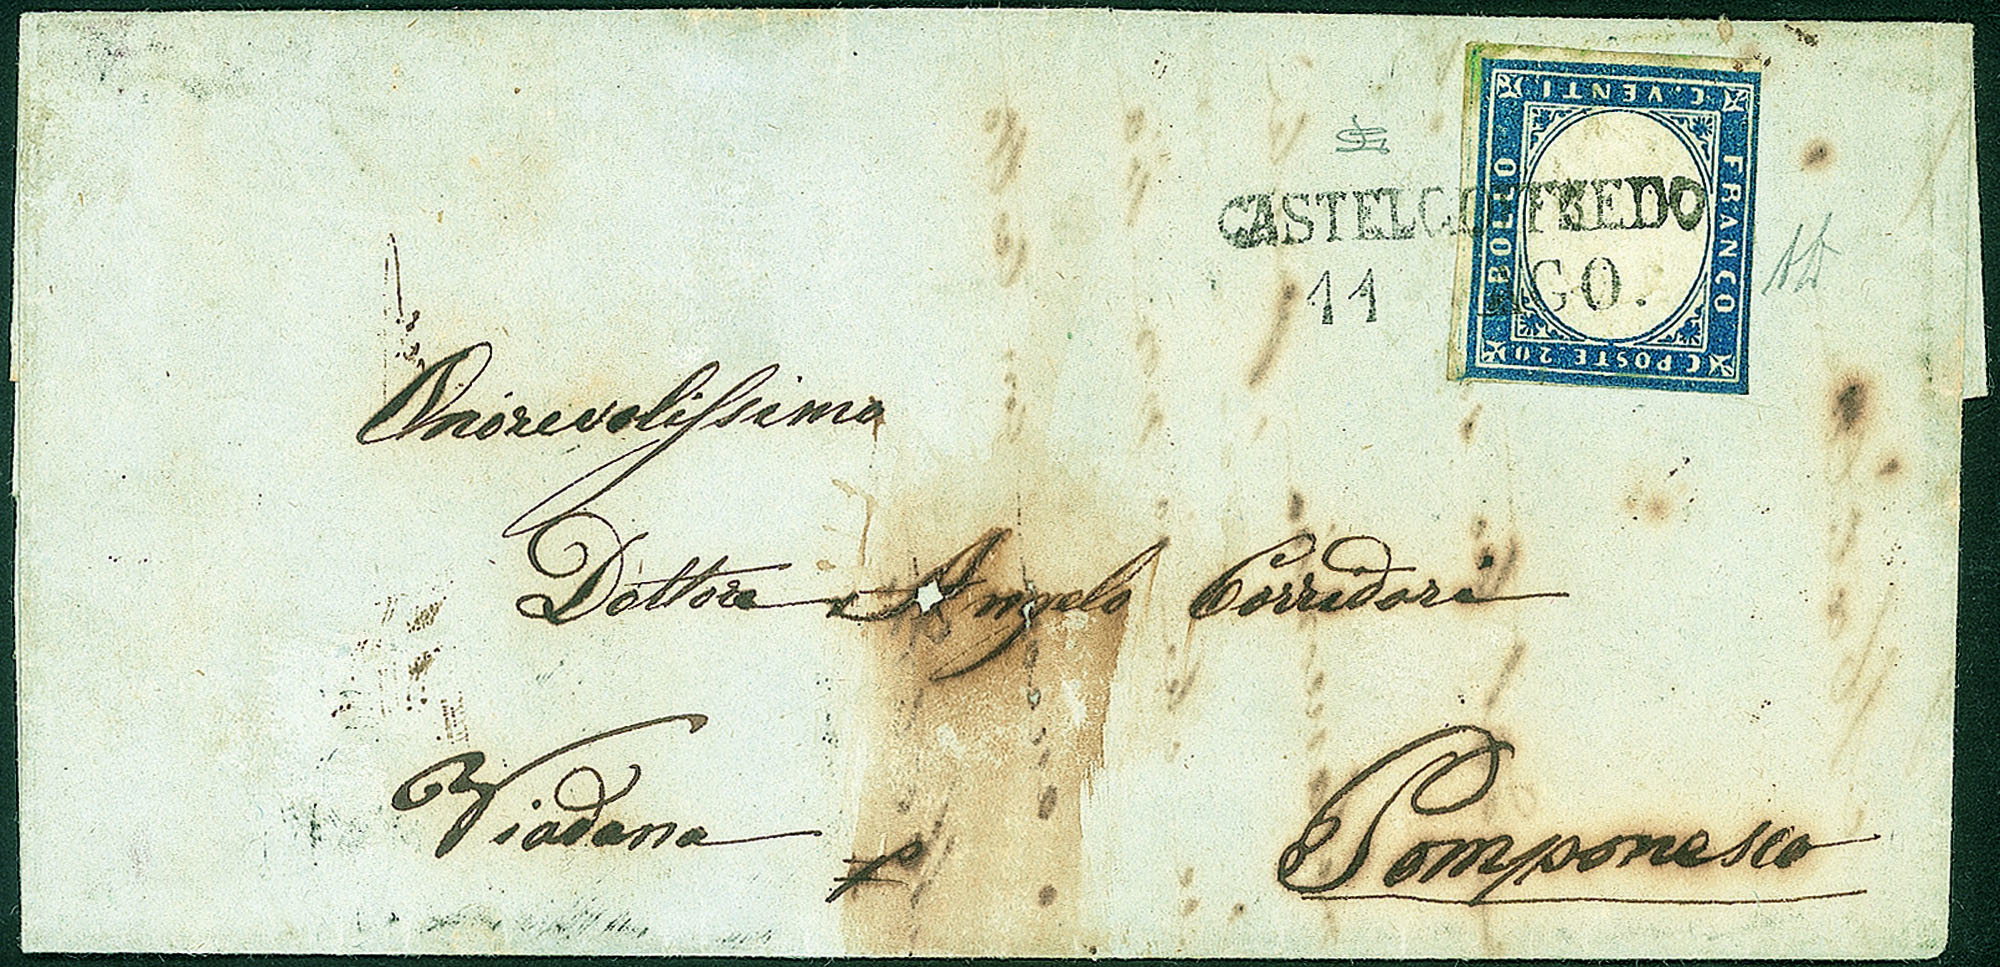 C. VENTI
FRANCO
BOLLO
C POSTE 20
CASTELGOFFREDO
11 AGO.
Onorevolissimo
Dottore Angelo Corridori
Viadana
Pomponesco